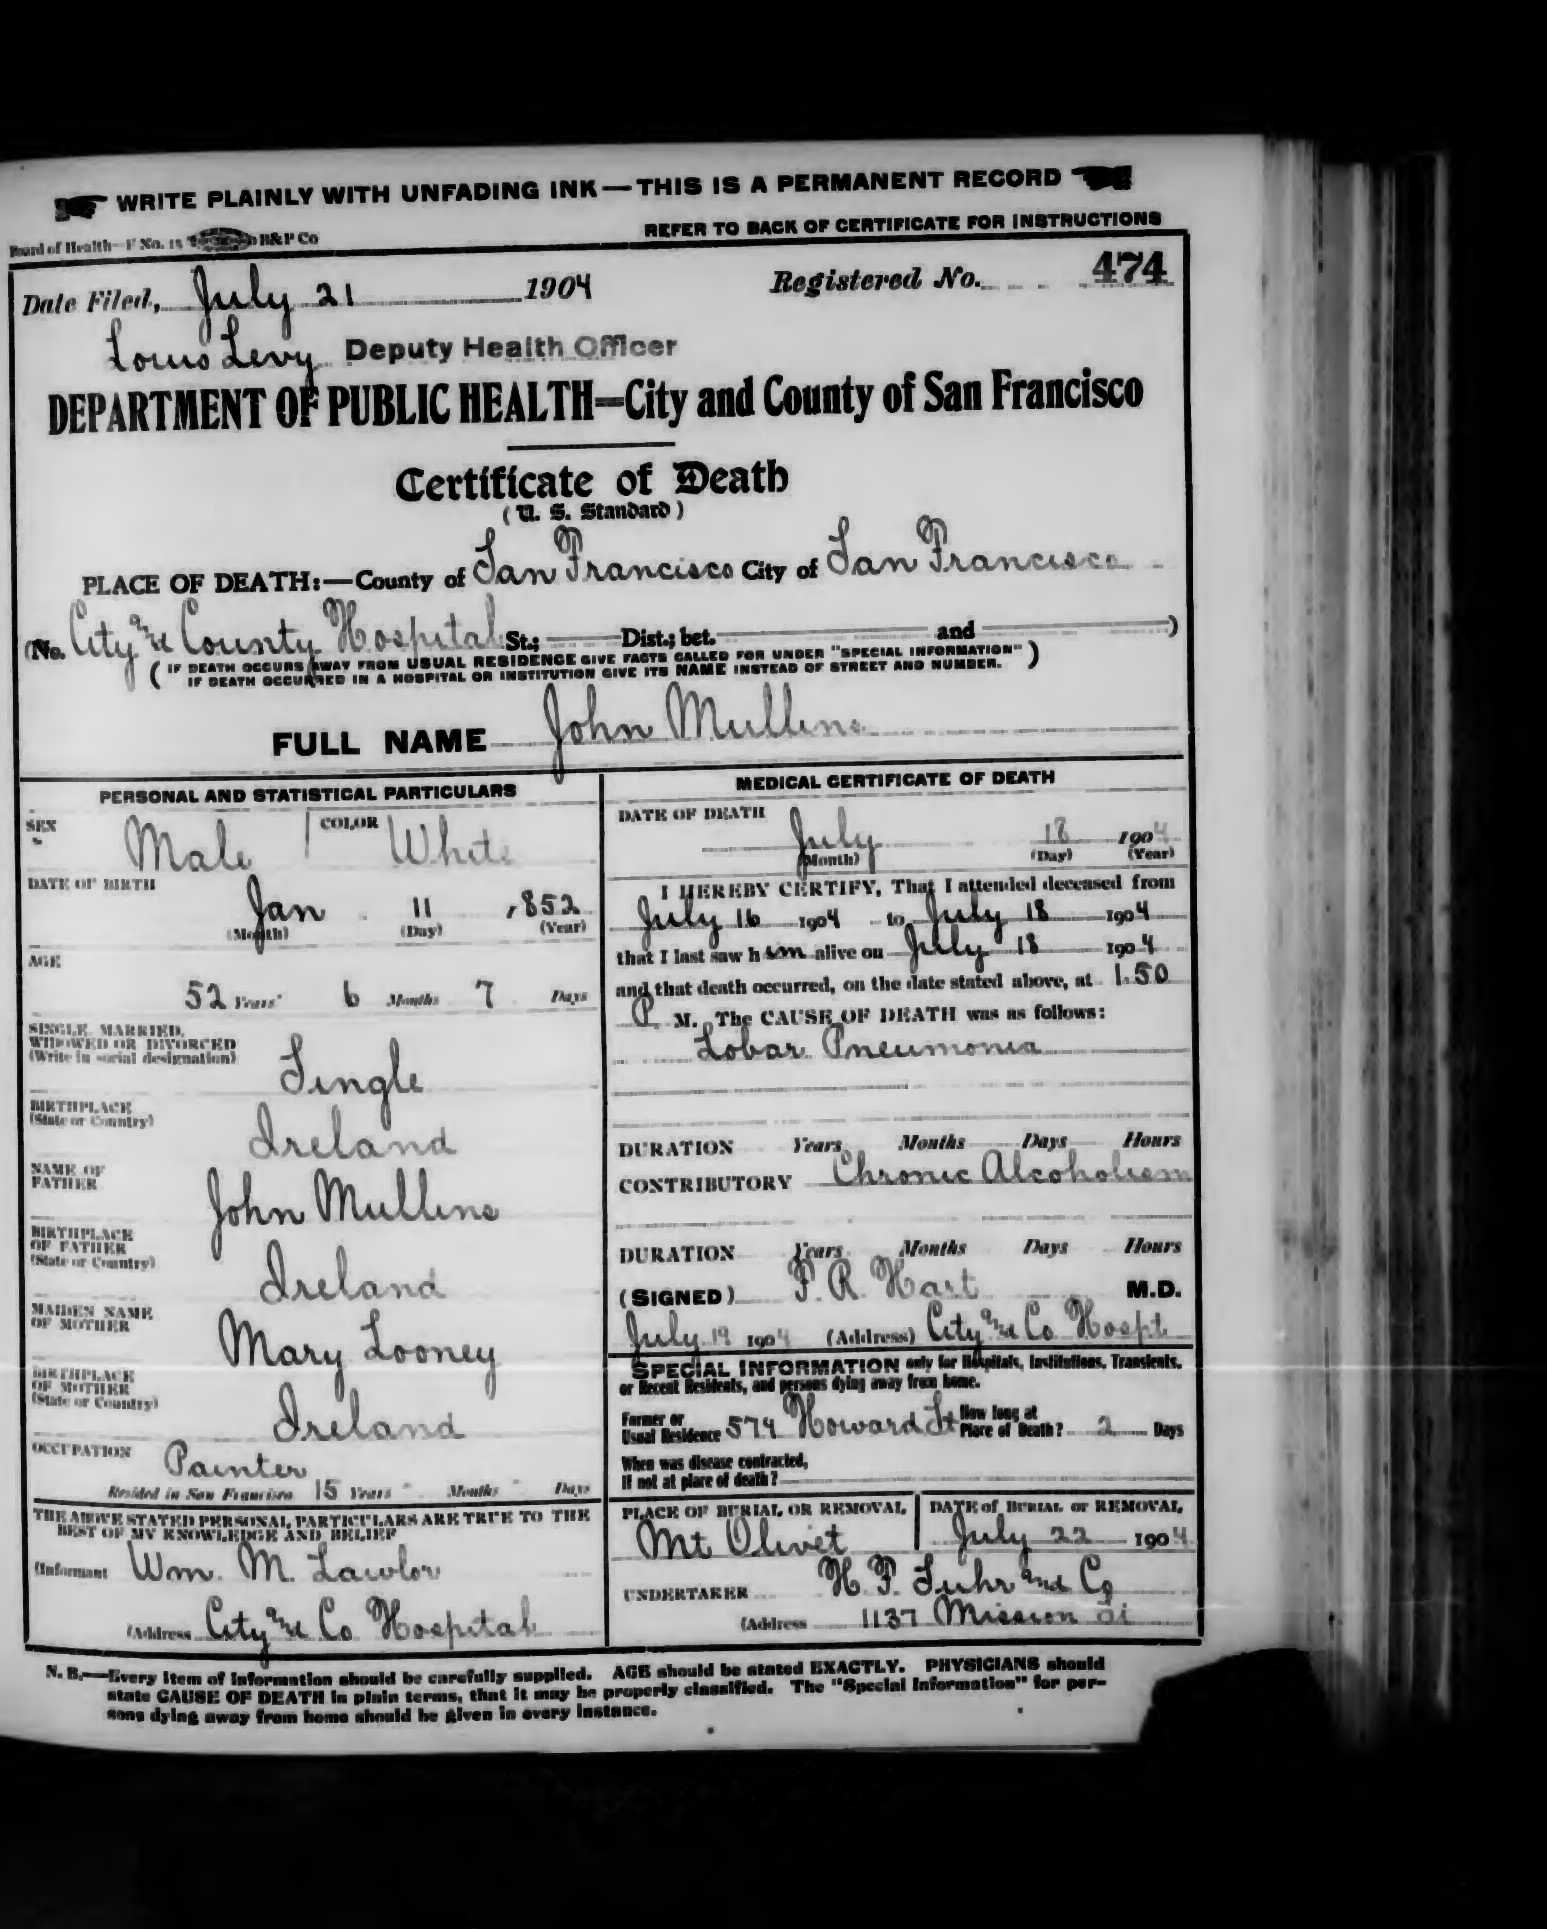 WRITE PLAINLY WITH UNFADING INK—THIS IS A PERMANENT RECORD
REFER TO BACK OF CERTIFICATE FOR INSTRUCTIONS
Board of Health—F No. 15 B&P Co
Date Filed, July 21 1904 Registered No. 474
Louis Levy Deputy Health Officer
DEPARTMENT OF PUBLIC HEALTH—City and County of San Francisco
Certificate of Death
(U. S. Standard)
PLACE OF DEATH:—County of San Francisco City of San Francisco
(No. City and County Hospital St.; Dist.; bet. and )
( IF DEATH OCCURS AWAY FROM USUAL RESIDENCE GIVE FACTS CALLED FOR UNDER "SPECIAL INFORMATION"
IF DEATH OCCURRED IN A HOSPITAL OR INSTITUTION GIVE ITS NAME INSTEAD OF STREET AND NUMBER. )
FULL NAME John Mullins
PERSONAL AND STATISTICAL PARTICULARS
SEX Male COLOR White
DATE OF BIRTH
Jan 11 1852
(Month) (Day) (Year)
AGE
52 Years 6 Months 7 Days
SINGLE, MARRIED,
WIDOWED OR DIVORCED
(Write in social designation)
Single
BIRTHPLACE
(State or Country)
Ireland
NAME OF
FATHER
John Mullins
BIRTHPLACE
OF FATHER
(State or Country)
Ireland
MAIDEN NAME
OF MOTHER
Mary Looney
BIRTHPLACE
OF MOTHER
(State or Country)
Ireland
OCCUPATION Painter
Resided in San Francisco 15 Years " Months " Days
THE ABOVE STATED PERSONAL PARTICULARS ARE TRUE TO THE
BEST OF MY KNOWLEDGE AND BELIEF
(Informant Wm. M. Lawlor
(Address City and Co Hospital
MEDICAL CERTIFICATE OF DEATH
DATE OF DEATH
July 18 1904
(Month) (Day) (Year)
I HEREBY CERTIFY, That I attended deceased from
July 16 1904 to July 18 1904
that I last saw him alive on July 18 1904
and that death occurred, on the date stated above, at 1.50
P. M. The CAUSE OF DEATH was as follows:
Lobar Pneumonia
DURATION Years Months Days Hours
CONTRIBUTORY Chronic Alcoholism
DURATION Years Months Days Hours
(SIGNED) F. R. Hart M.D.
July 19 1904 (Address) City and Co Hospt
SPECIAL INFORMATION only for Hospitals, Institutions, Transients,
or Recent Residents, and persons dying away from home.
Former or
Usual Residence 574 Howard St How long at
Place of Death? 2 Days
When was disease contracted,
If not at place of death?
PLACE OF BURIAL OR REMOVAL DATE of BURIAL or REMOVAL
Mt Olivet July 22 1904
UNDERTAKER H. F. Suhr and Co
(Address 1137 Mission St
N. B.—Every item of information should be carefully supplied. AGE should be stated EXACTLY. PHYSICIANS should
state CAUSE OF DEATH in plain terms, that it may be properly classified. The "Special Information" for per-
sons dying away from home should be given in every instance.